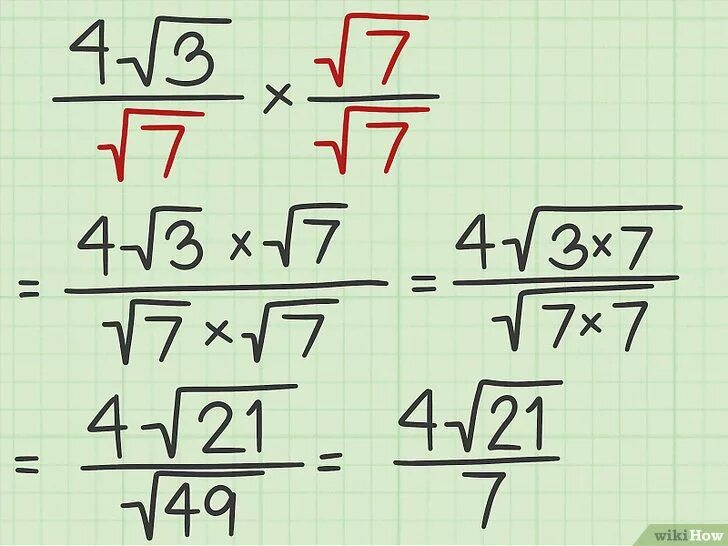 4√3/√7 × √7/√7
= 4√3 × √7/√7 × √7 = 4√3×7/√7×7
= 4√21/√49 = 4√21/7
wikiHow